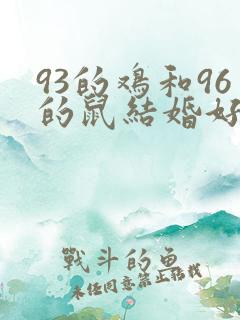 93的鸡和96
的鼠結婚好
戰斗的鱼
未经同意禁止转载